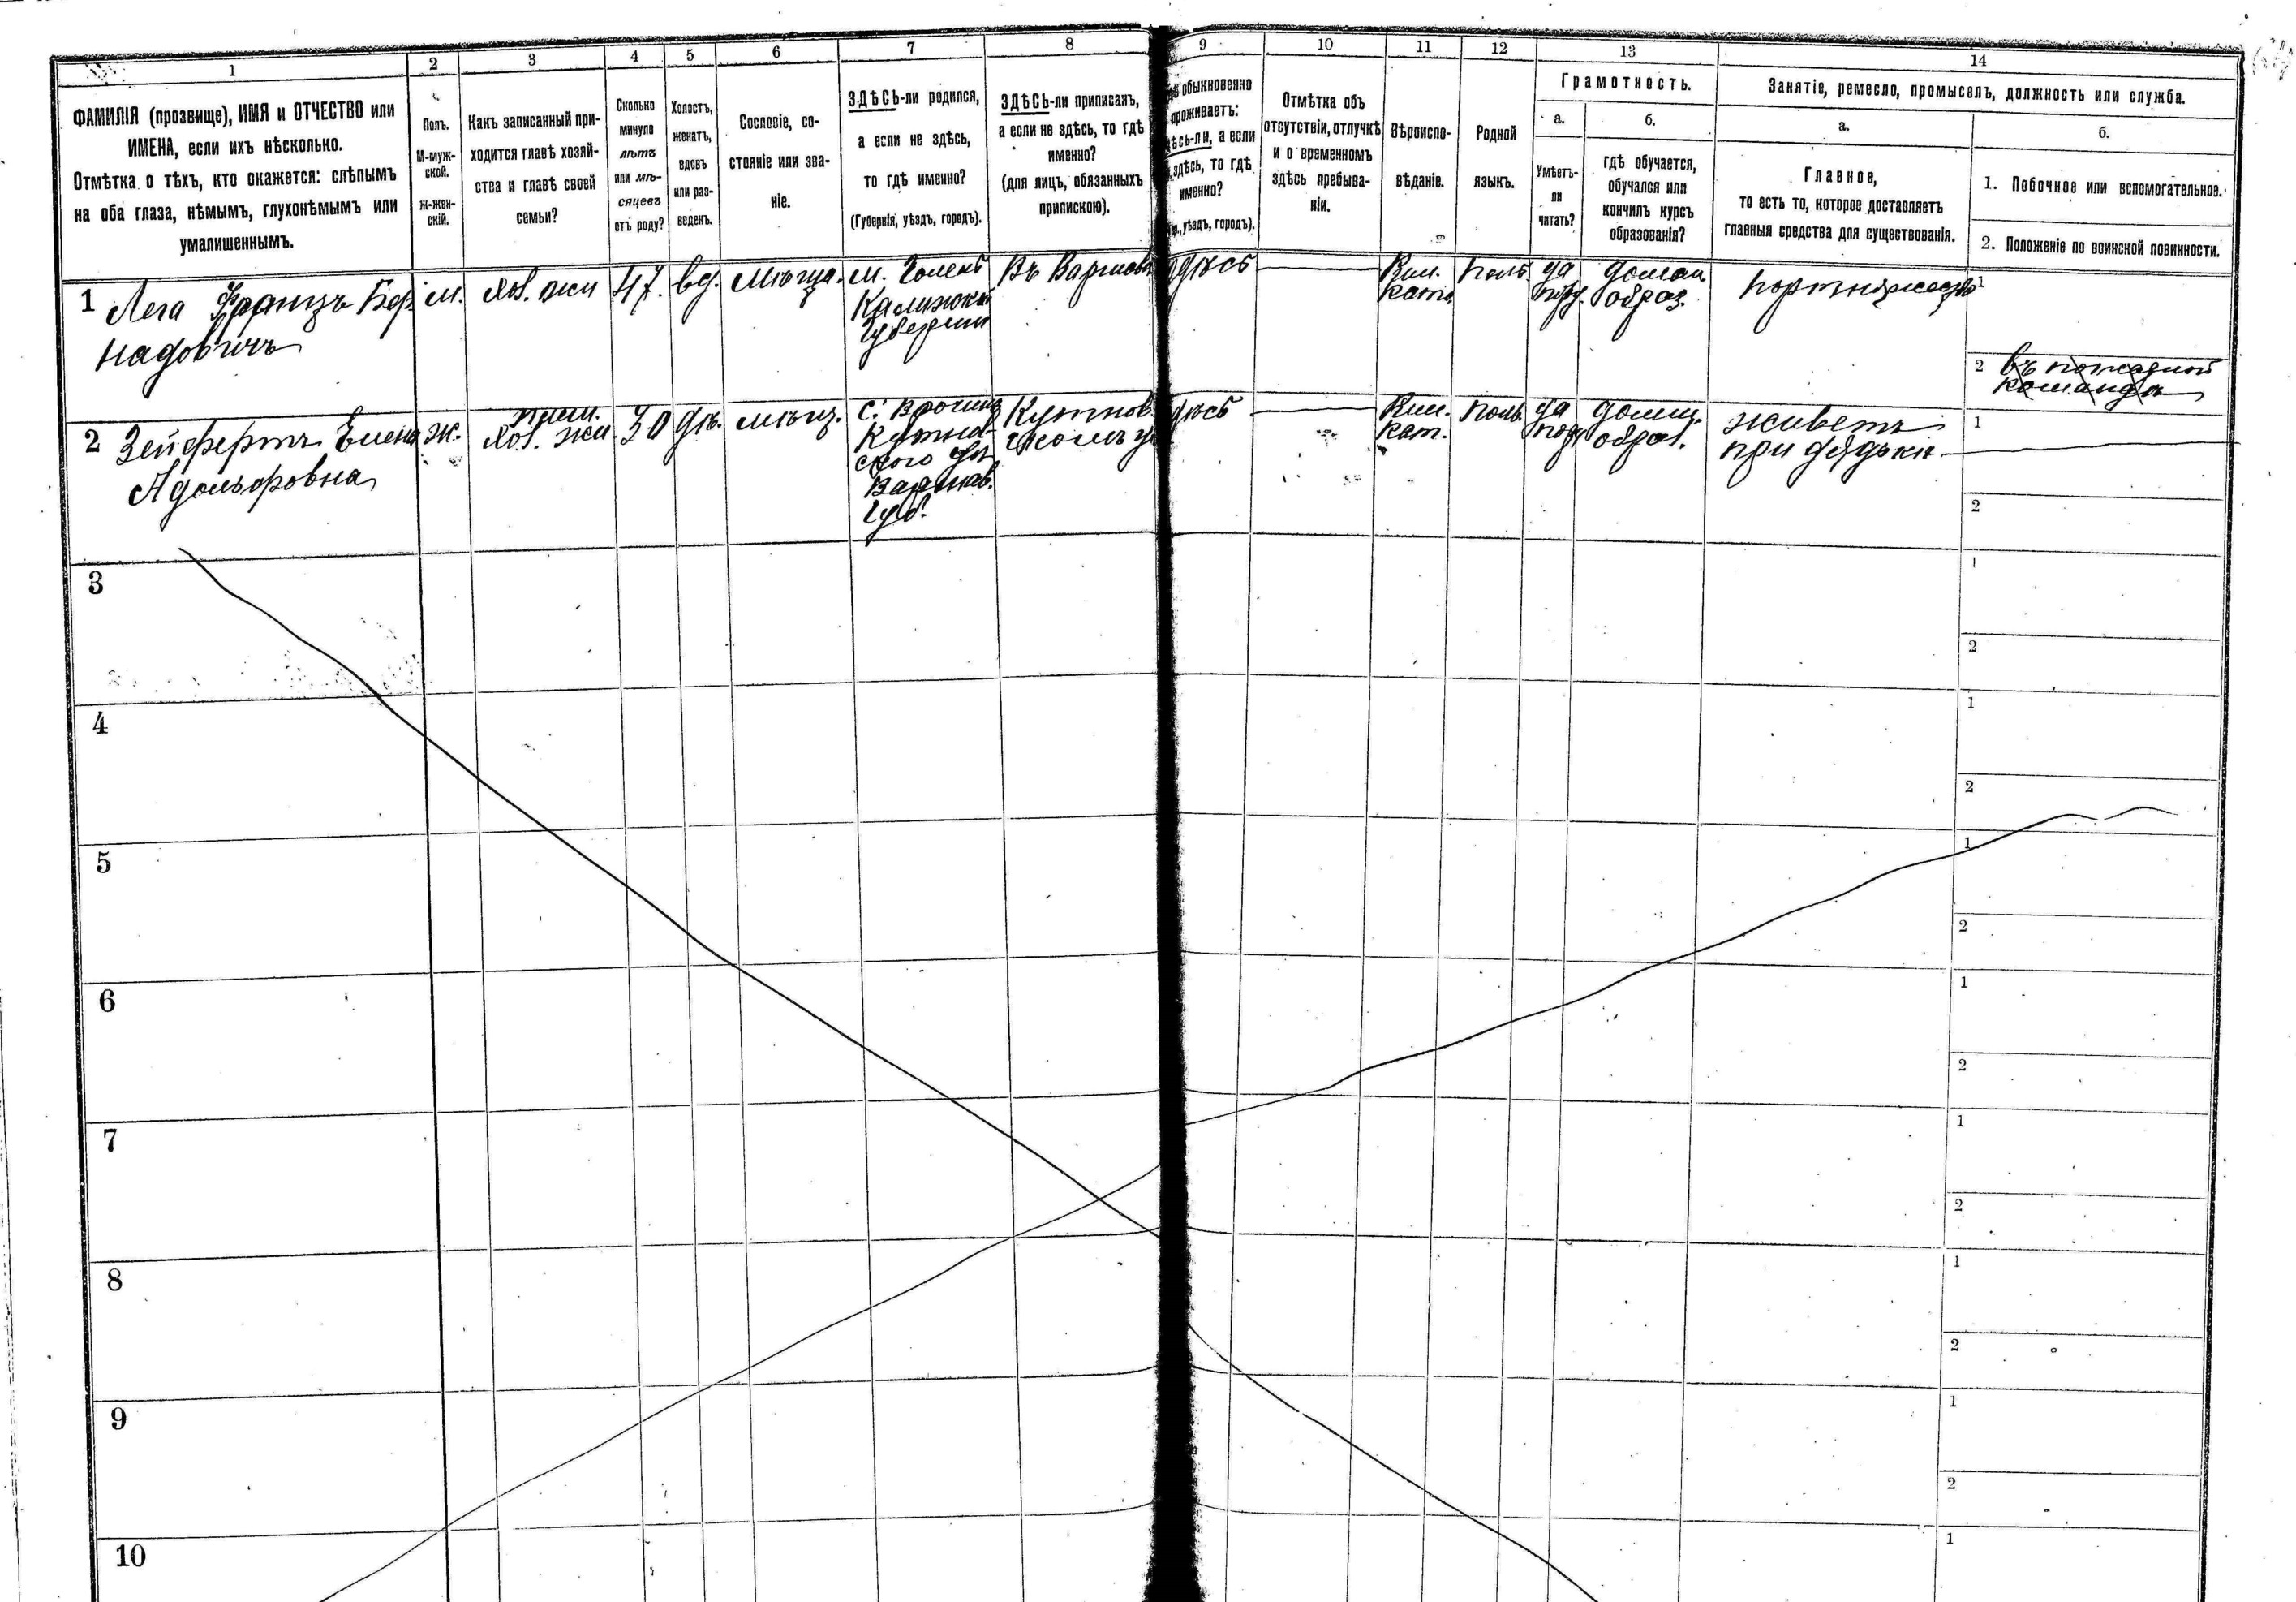 1
2
3
4
5
6
7
8
9
10
11
12
13
14
ФАМИЛІЯ (прозвище), ИМЯ и ОТЧЕСТВО или
ИМЕНА, если ихъ нѣсколько.
Отмѣтка о тѣхъ, кто окажется: слѣпымъ
на оба глаза, нѣмымъ, глухонѣмымъ или
умалишеннымъ.
Полъ.
М-муж-
ской.
ж-жен-
скій.
Какъ записанный при-
ходится главѣ хозяй-
ства и главѣ своей
семьи?
Сколько
минуло
лѣтъ
или мѣ-
сяцевъ
отъ роду?
Холостъ,
женатъ,
вдовъ
или раз-
веденъ.
Сословіе, со-
стояніе или зва-
ніе.
ЗДѢСЬ-ли родился,
а если не здѣсь,
то гдѣ именно?
(Губернія, уѣздъ, городъ).
ЗДѢСЬ-ли приписан,
а если не здѣсь, то гдѣ
именно?
(для лицъ, обязанныхъ
припискою).
обыкновенно
проживаетъ:
а если
здѣсь, то гдѣ
именно?
уѣздъ, городъ).
Отмѣтка объ
отсутствіи, отлучкѣ
и о временномъ
здѣсь пребыва-
ніи.
Вѣроиспо-
вѣданіе.
Родной
языкъ.
Грамотность.
а.
Умѣетъ-
ли
читать?
б.
гдѣ обучается,
обучался или
кончилъ курсъ
образованія?
Занятіе, ремесло, промыселъ, должность или служба.
а.
Главное,
то есть то, которое доставляетъ
главныя средства для существованія.
б.
1. Побочное или вспомогательное.
2. Положеніе по воинской повинности.
1 Лега Францъ Бер
надовичъ
м.
хоз.
47.
вд.
мѣща.
м.
Губерніи
Въ Варшавѣ
здѣсь
Рим.
като
поль
да
домаш.
образ.
1
2 въ пожарной
командѣ
2 Зейфертъ Елена
Адольфовна
ж.
плем.
хоз.
30
дѣ.
мѣщ.
с.
Кутно-
ского
Варшав.
Губ.
Кутнов
скомъ у
здѣсь
Рим.
кат.
поль.
да
домаш.
образ.
живетъ
при дядьки
1
2
3
1
2
4
1
2
5
1
2
6
1
2
7
1
2
8
1
2
9
1
2
10
1